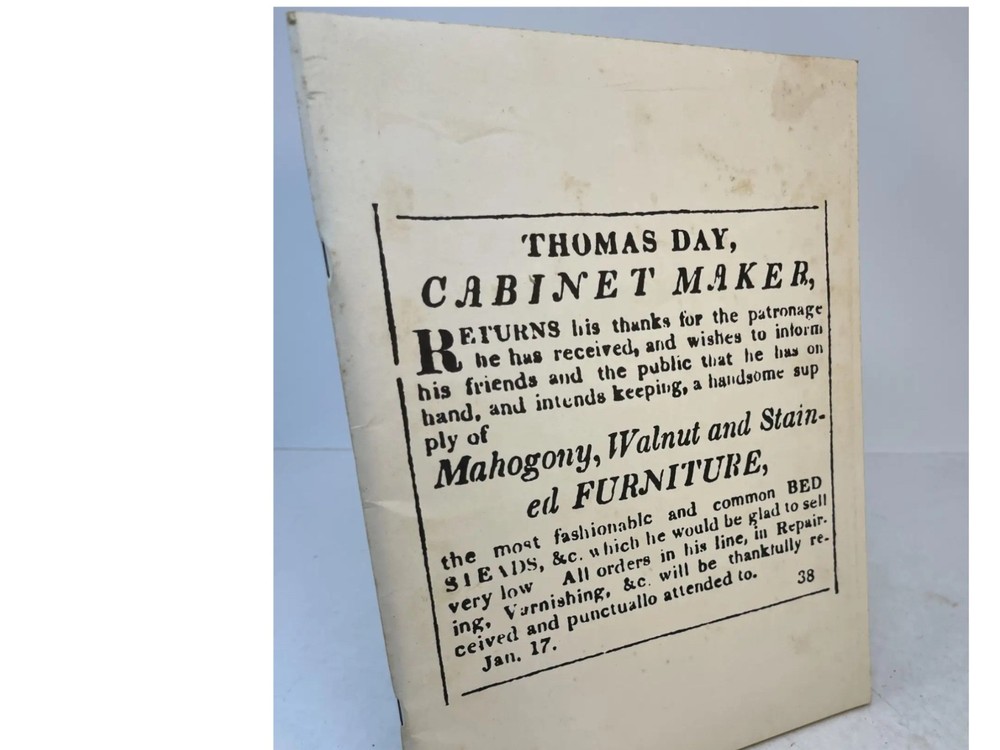 THOMAS DAY,
CABINET MAKER,
RETURNS his thanks for the patronage
he has received, and wishes to inform
his friends and the public that he has on
hand, and intends keeping, a handsome sup
ply of
Mahogony, Walnut and Stain-
ed FURNITURE,
the most fashionable and common BED
STEADS, &c. which he would be glad to sell
very low All orders in his line, in Repair-
ing, Varnishing, &c. will be thankfully re-
ceived and punctuallo attended to.
Jan. 17. 38